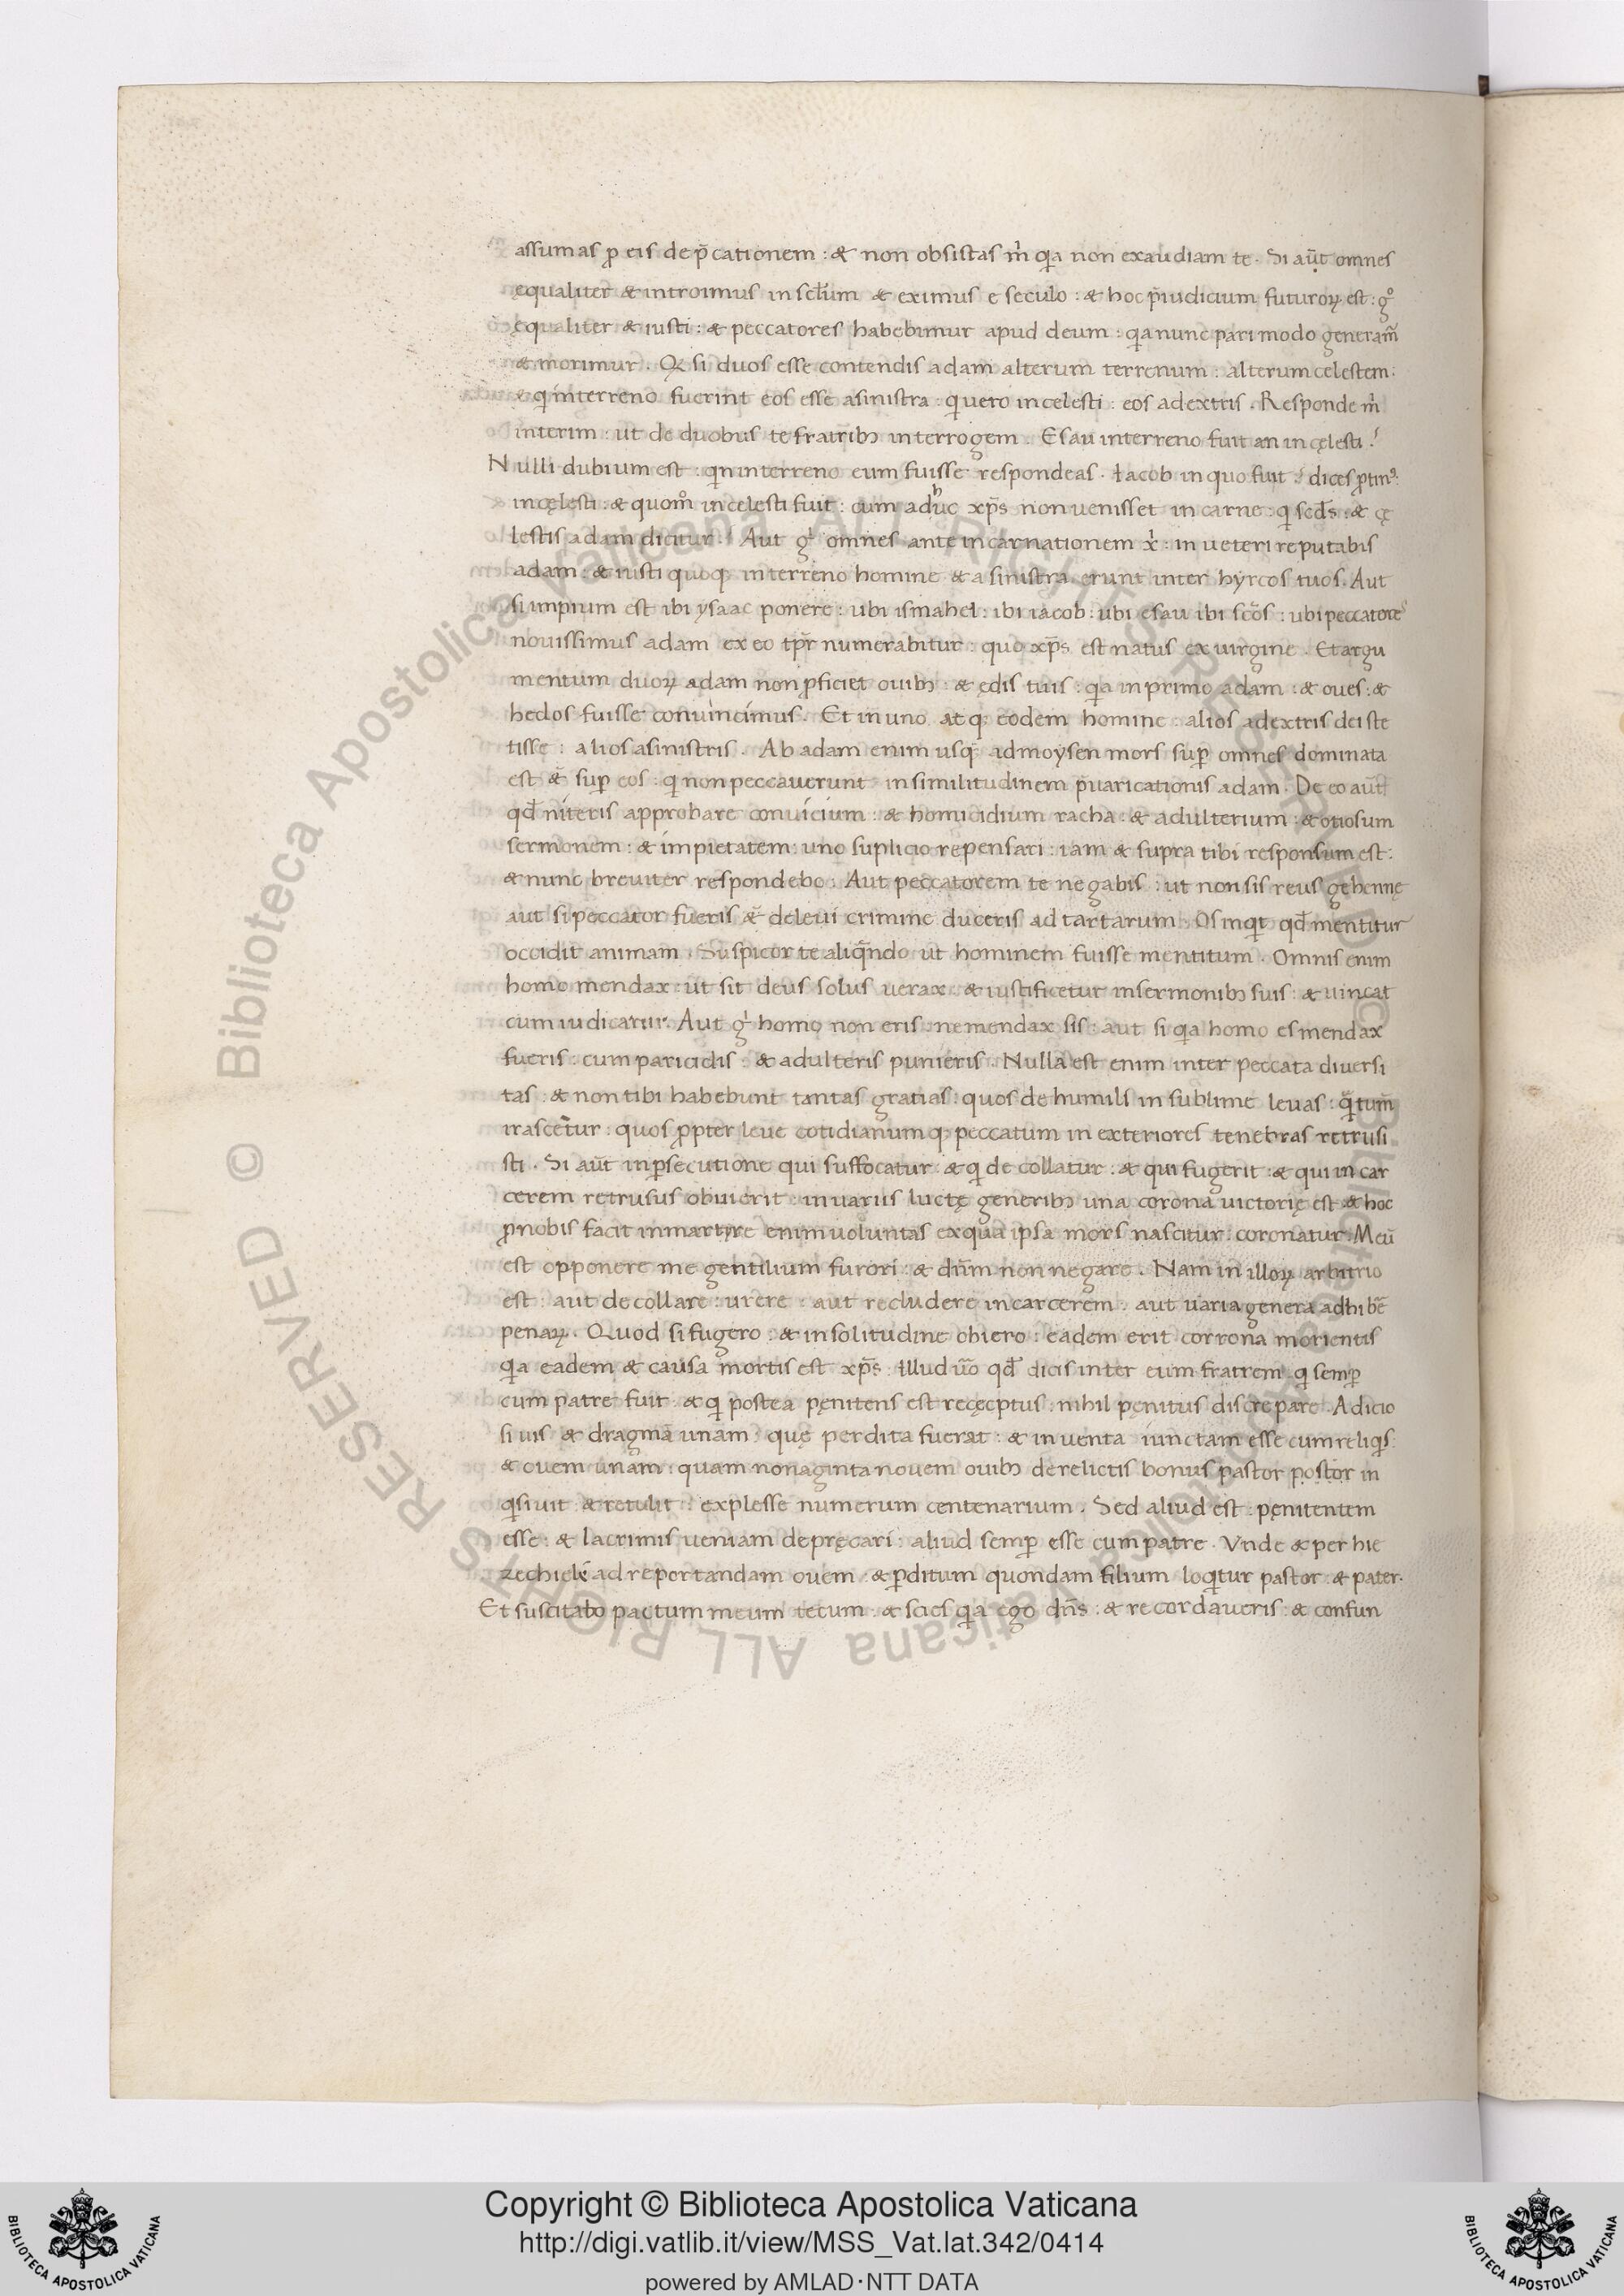 assumas ꝓ eis dep̄cationem : & non obsistas m̓ qꝛa non exaudiam te. Si aūt omnes
equaliter & introimus in sctl̄um & eximus e seculo : & hoc p̄iudicium futuroꝝ est : gͦ
equaliter & iusti : & peccatores habebimur apud deum : qꝛa nunc pari modo generam̃
& morimur . Qꝫ si duos esse contendis adam alterum terrenum : alterum celestem :
& q interreno fuerint eos esse asinistra : q uero in celesti : eos adextris . Responde m̓
interim : ut de duobus te fratribꝫ interrogem . Esau interreno fuit an in cęlesti ?
Nulli dubium est : qn interreno eum fuisse respondeas . Iacob in quo fuit ? dices ꝓtinꝰ :
in cęlesti : & quom̊ in celesti fuit : cum adhuc xp̄s non uenisset in carne : q scd̄s : & cę
lestis adam dicitur ? Aut gͥ omnes ante incarnationem x̓ : in ueteri reputabis
adam : & iusti quoqꝫ interreno homine & a sinistra erunt inter hyrcos tuos . Aut
si impium est ibi ysaac ponere : ubi ismahel : ibi iacob : ubi esau ibi sc̄os : ubi peccatores
nouissimus adam ex eo tp̄r numerabitur : quo xp̄s est natus ex uirgine . Et argu
mentum duoꝝ adam non ꝓficiet ouibꝫ : & ędis tuis : qꝛa in primo adam : & oues : &
hedos fuisse conuincimus . Et in uno atqꝫ eodem homine : alios adextris dei ste
tisse : alios asinistris . Ab adam enim usqꝫ admoysen mors suꝑ omnes dominata
est &̄ suꝑ eos : q non peccauerunt in similitudinem p̄uaricationis adam . De eo aūt
qd̄ niteris approbare conuicium : & homicidium racha : & adulterium : & otiosum
sermonem : & impietatem : uno suplicio repensari : iam & supra tibi responsum est :
& nunc breuiter respondebo : Aut peccatorem te negabis : ut non sis reus gehennę
aut si peccator fueris &̄ deleui crimine duceris ad tartarum . Os inqt qd̄ mentitur
occidit animam . Suspicor te aliqᷓndo ut hominem fuisse mentitum . Omnis enim
homo mendax : ut sit deus solus uerax : & iustificetur insermonibꝫ suis : & uincat
cum iudicatur . Aut gͥ homo non eris : ne mendax sis : aut si qꝛa homo es mendax
fueris : cum paricidis : & adulteris punieris . Nulla est enim inter peccata diuersi
tas : & non tibi habebunt tantas gratias : quos de humili in sublime leuas : qᷓtum̄
irascētur : quos ꝓpter leue cotidianumqꝫ peccatum in exteriores tenebras retrusi
sti . Si aūt inꝑsecutione qui suffocatur : & q de collatur : & qui fugerit : & qui in car
cerem retrusus obuierit : in uariis luctę generibꝫ una corona uictorię est & hoc
ꝓ nobis facit in martyre enim uoluntas exqua ipsa mors nascitur : coronatur . Meū
est opponere me gentilium furori : & dn̄m non negare . Nam in illoꝝ arbitrio
est : aut de collare : urere : aut recludere in carcerem : aut uaria genera adhibē
penaꝝ . Quod si fugero : & in solitudine obiero : eadem erit corrona morientis
qꝛa eadem & causa mortis est xp̄s . Illud ūo qd̄ dicis inter eum fratrem : q semꝑ
cum patre fuit : & q postea pęnitens est recęcptus : nihil pęnitus discrepare . Adicio
si uis & dragmā unam : quę perdita fuerat : & inuenta iunctam esse cum reliqꝫs :
& ouem unam : quam nonaginta nouem ouibꝫ derelictis bonus pastor postor in
qsiuit : & retulit : explesse numerum centenarium . Sed aliud est : pęnitentem
esse : & lacrimis ueniam depręcari : aliud semꝑ esse cum patre . Vnde & per hie
zechielē ad reportandam ouem : & ꝑditum quondam filium loqꝫtur pastor : & pater .
Et suscitabo pactum meum tecum : & scies qꝛa ego dn̄s : & recordaueris : & confun
Copyright © Biblioteca Apostolica Vaticana
http://digi.vatlib.it/view/MSS_Vat.lat.342/0414
powered by AMLAD·NTT DATA
BIBLIOTECA APOSTOLICA VATICANA
BIBLIOTECA APOSTOLICA VATICANA
© Biblioteca Apostolica Vaticana ALL RIGHTS RESERVED
© Biblioteca Apostolica Vaticana ALL RIGHTS RESERVED